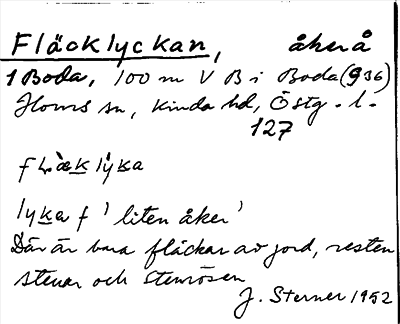 Fläcklyckan, åker å
1 Boda, 100 m V B i Boda (936)
Horns sn, Kinda hd, Östg. l.
127
lyka f 'liten åker'
Där är bara fläckar av jord, resten
stenar och stenrösen
J. Sterner 1952